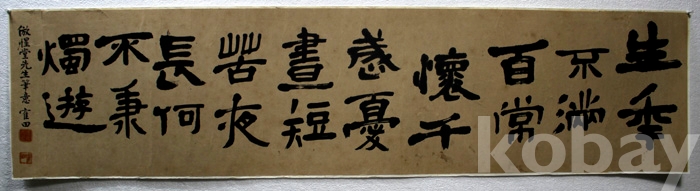 生年
不滿
百常
懷千
歲憂
晝短
苦夜
長何
不秉
燭遊
倣惺堂先生筆意
kobay